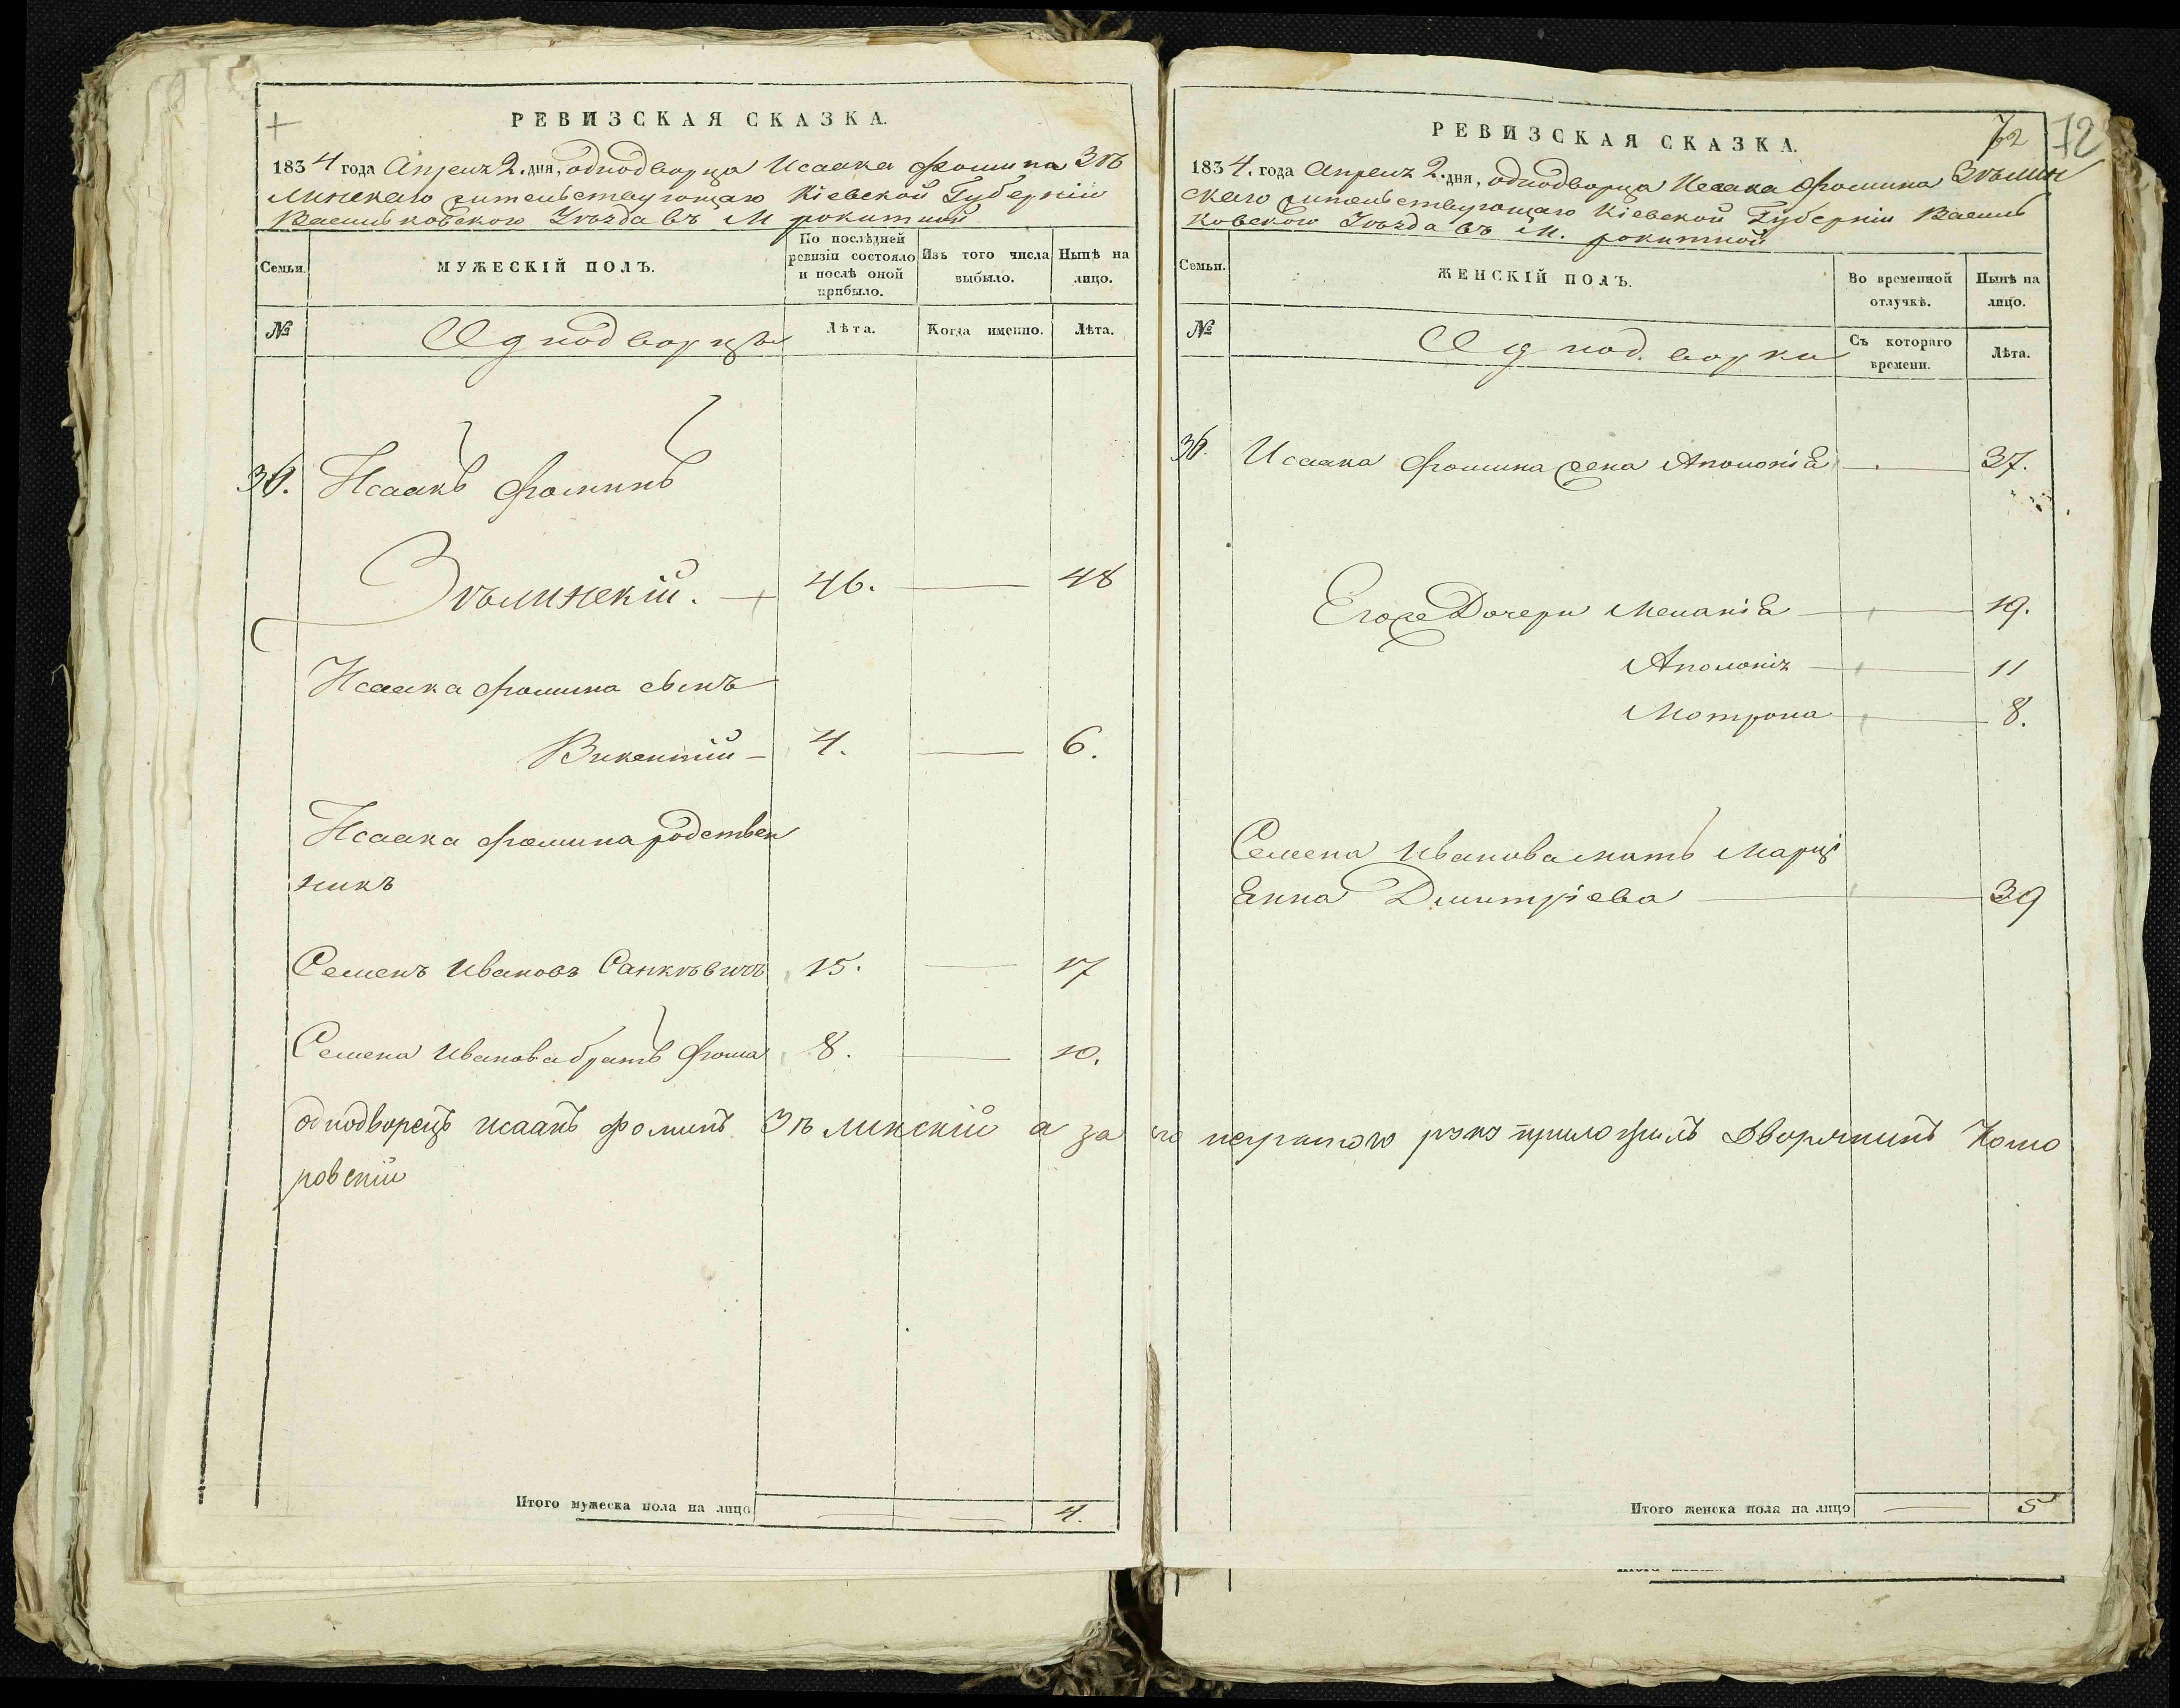 РЕВИЗСКАЯ СКАЗКА.
1834 года Апреля 2. дня, однодворца Исаака Фомина Зѣ
линскаго жительствующаго Кіевской Губерніи
Васильковского Уѣзда въ М рокитной
Семьи.
МУЖЕСКІЙ ПОЛЪ.
По послѣдней
ревизіи состояло
и послѣ оной
прибыло.
Изъ того числа
выбыло.
Нынѣ на
лицо.
№
Однодворцы
Лѣта.
Когда именно.
Лѣта.
Исаакъ Фоминъ
Зѣлинскій. 46. — 48
Исаака Фомина сынъ
Викентій — 4. — 6.
Исаака Фомина родствен
никъ
Семенъ Ивановъ Санкѣвичъ 15. — 17
Семена Иванова братъ Фома 8. — 10.
однодворецъ исаакъ фоминъ Зѣлинскій а за его неграмотного руку приложилъ Дворянинъ Комо
ровскій
Итого мужеска пола на лицо — — 4.
72 72
РЕВИЗСКАЯ СКАЗКА.
1834. года Апреля 2. дня, однодворца Исаака Фомина Зѣлин
скаго жительствующаго Кіевской Губерніи Василь
ковского Уѣзда въ М. рокитной
Семьи.
ЖЕНСКІЙ ПОЛЪ.
Во временной
отлучкѣ.
Нынѣ на
лицо.
№
Однодворки
Съ котораго
времени.
Лѣта.
Исаака Фомина жена Аполонія — 37.
Егоже Дочери Меланія — 19.
Аполонія — 11
Мотрона — 8.
Семена Иванова мать Марці
анна Дмитріева — 39
Итого женска пола на лицо — 5